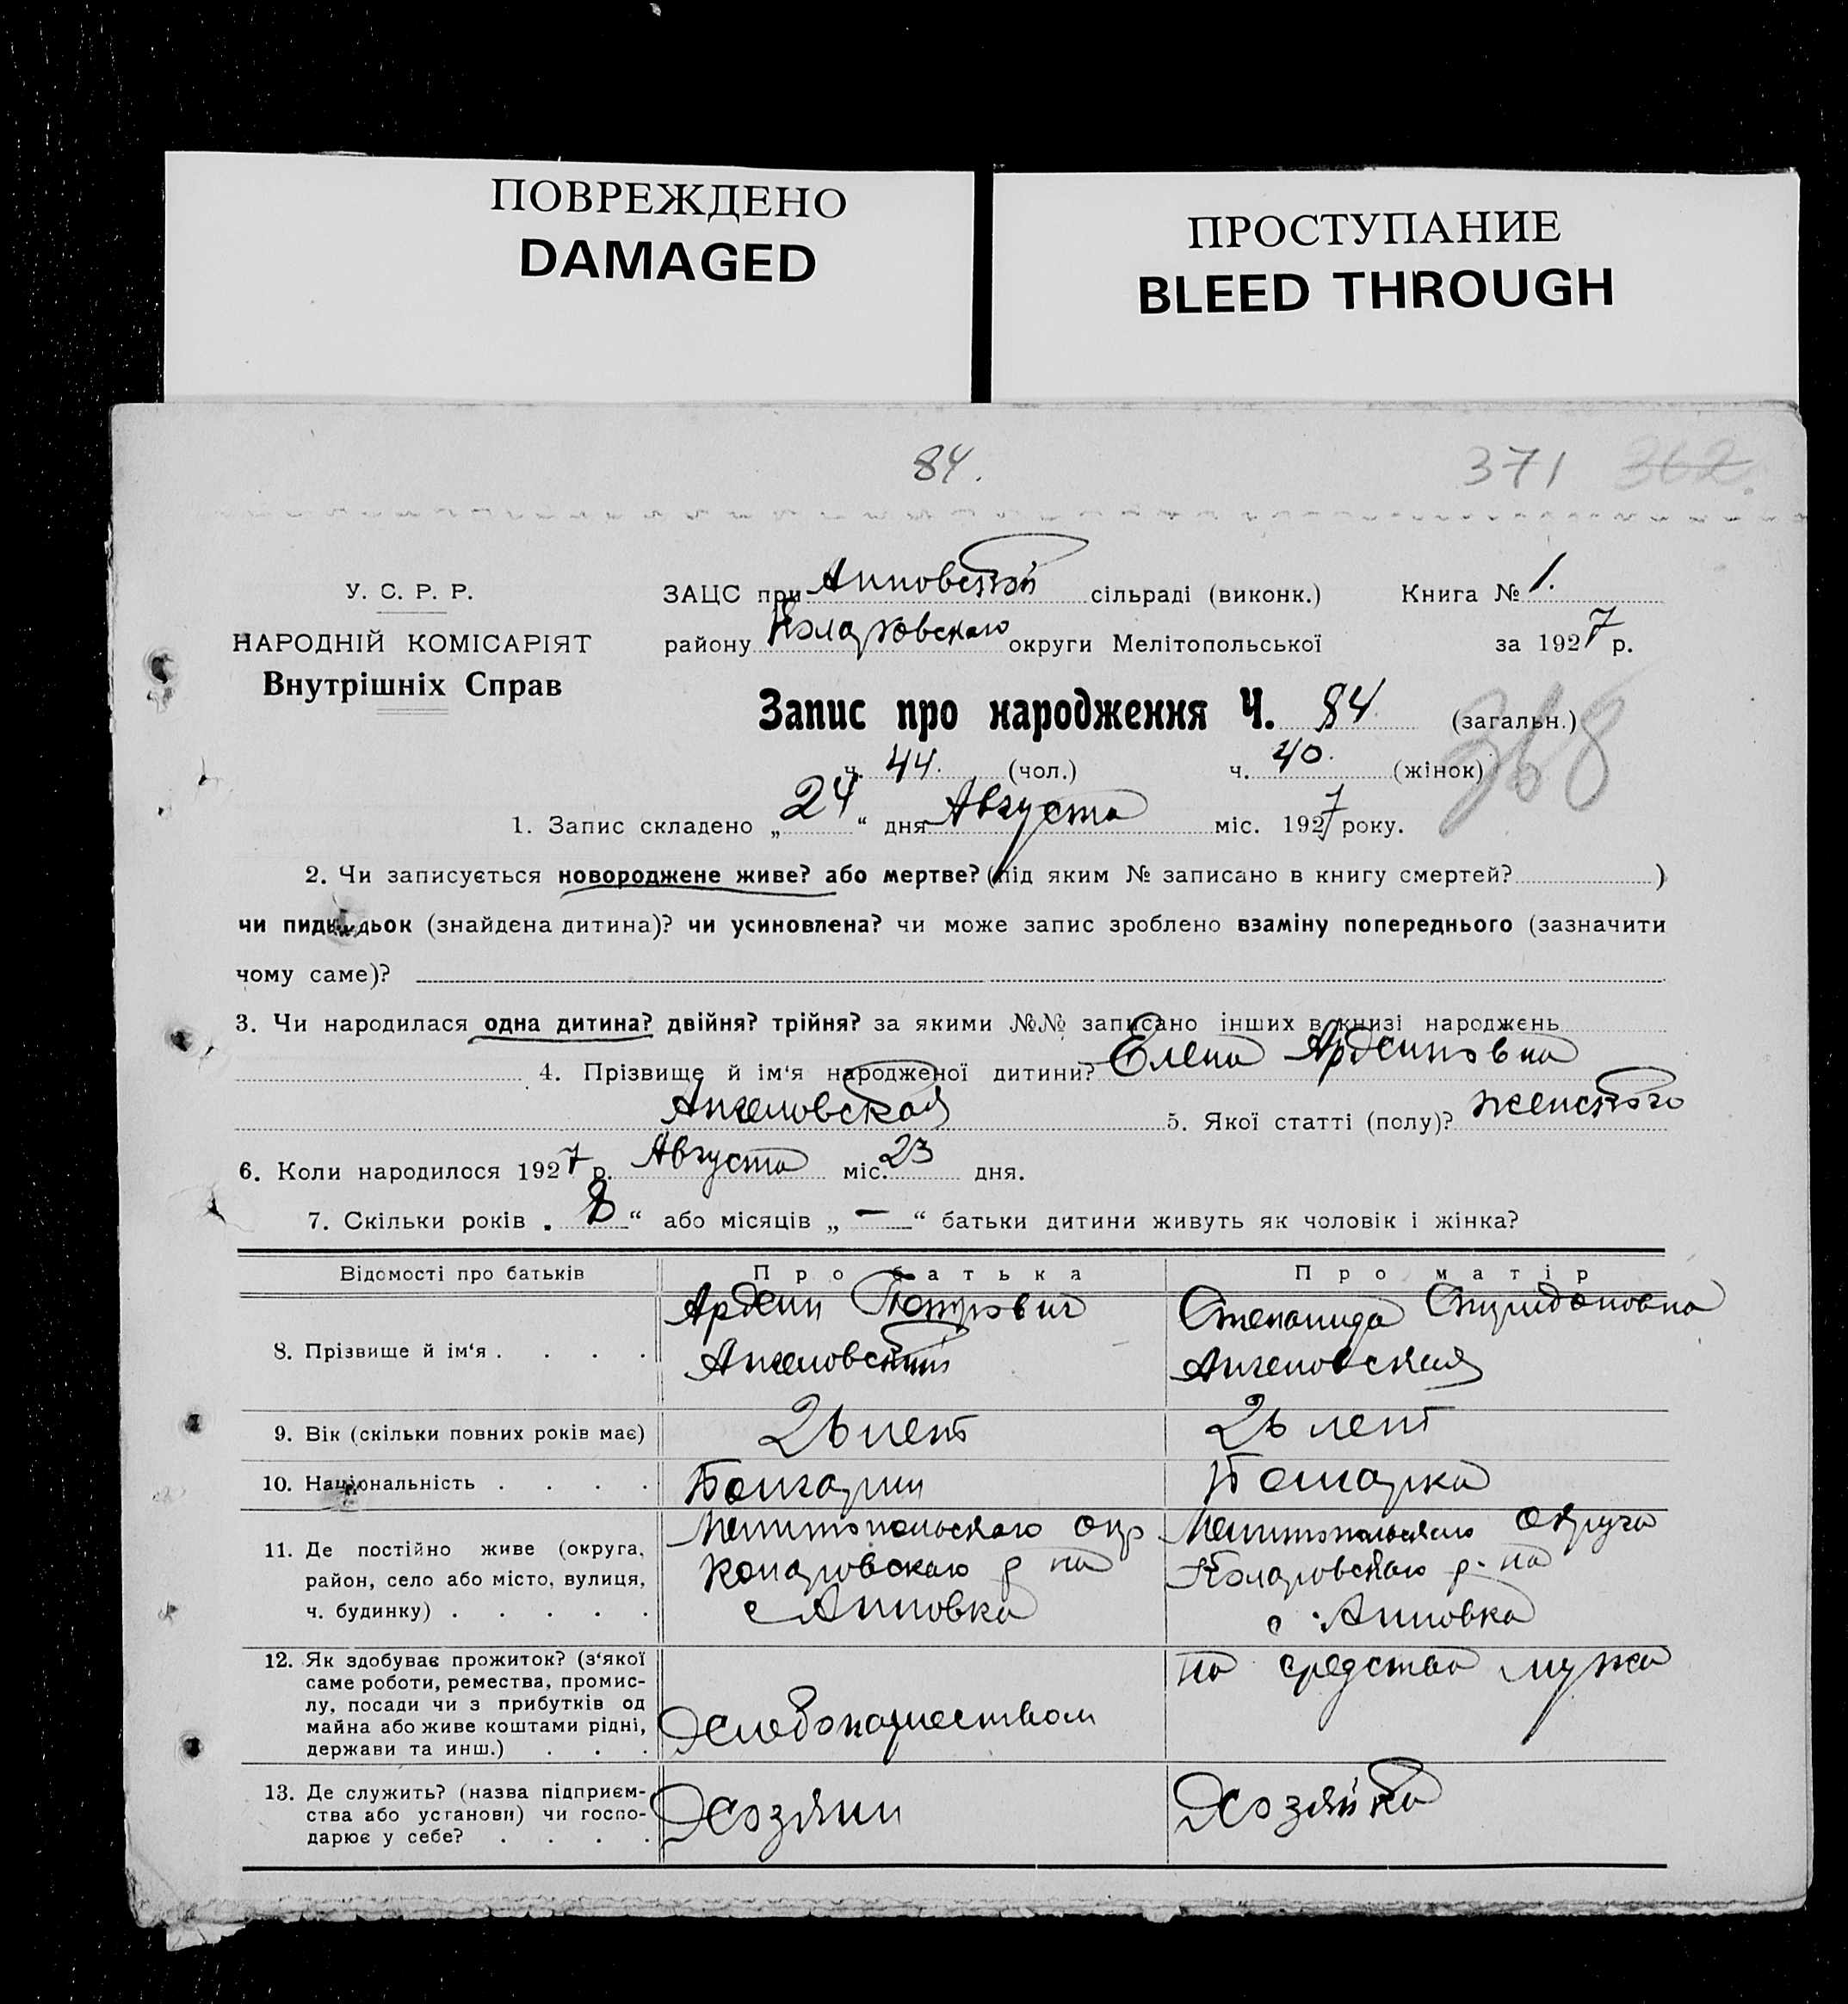 ПОВРЕЖДЕНО
DAMAGED
ПРОСТУПАНИЕ
BLEED THROUGH
84.
371 362.
У. С. Р. Р.
НАРОДНІЙ КОМІСАРІЯТ
Внутрішніх Справ
ЗАЦС при Анновской сільраді (виконк.) Книга № 1.
району Коларовскаго округи Мелітопольської за 1927 р.
Запис про народження Ч. 84 (загальн.)
368
ч. 44. (чол.) ч. 40. (жінок)
1. Запис складено „24“ дня Августа міс. 1927 року.
2. Чи записується новороджене живе? або мертве? (під яким № записано в книгу смертей? )
чи пидкидьок (знайдена дитина)? чи усиновлена? чи може запис зроблено взаміну попереднього (зазначити
чому саме)?
3. Чи народилася одна дитина? двійня? трійня? за якими №№ записано інших в книзі народжень
4. Прізвище й ім‘я народженої дитини? Елена
Ангеловская 5. Якої статті (полу)? женского
6. Коли народилося 1927 р. Августа міс. 23 дня.
7. Скільки років „8“ або місяців „—“ батьки дитини живуть як чоловік і жінка?
Відомості про батьків Про батька Про матір
8. Прізвище й ім‘я . . . .
Петрович
Ангеловский
Степанида Спиридоновна
Ангеловская
9. Вік (скільки повних років має) 26 лет 26 лет
10. Національність . . . . Болгарин Болгарка
11. Де постійно живе (округа,
район, село або місто, вулиця,
ч. будинку) . . . . .
Мелитопольскаго окр
Коларовскаго р на
с Анновка
Мелитопольскаго округа
Коларовскаго р. на
с. Анновка
12. Як здобуває прожиток? (з‘якої
саме роботи, ремества, промис-
лу, посади чи з прибутків од
майна або живе коштами рідні,
держави та инш.) . . .
Хлебопашеством
на средства мужа
13. Де служить? (назва підприєм-
ства або установи) чи госпо-
дарює у себе? . . . .
Хозяин
Хозяйка